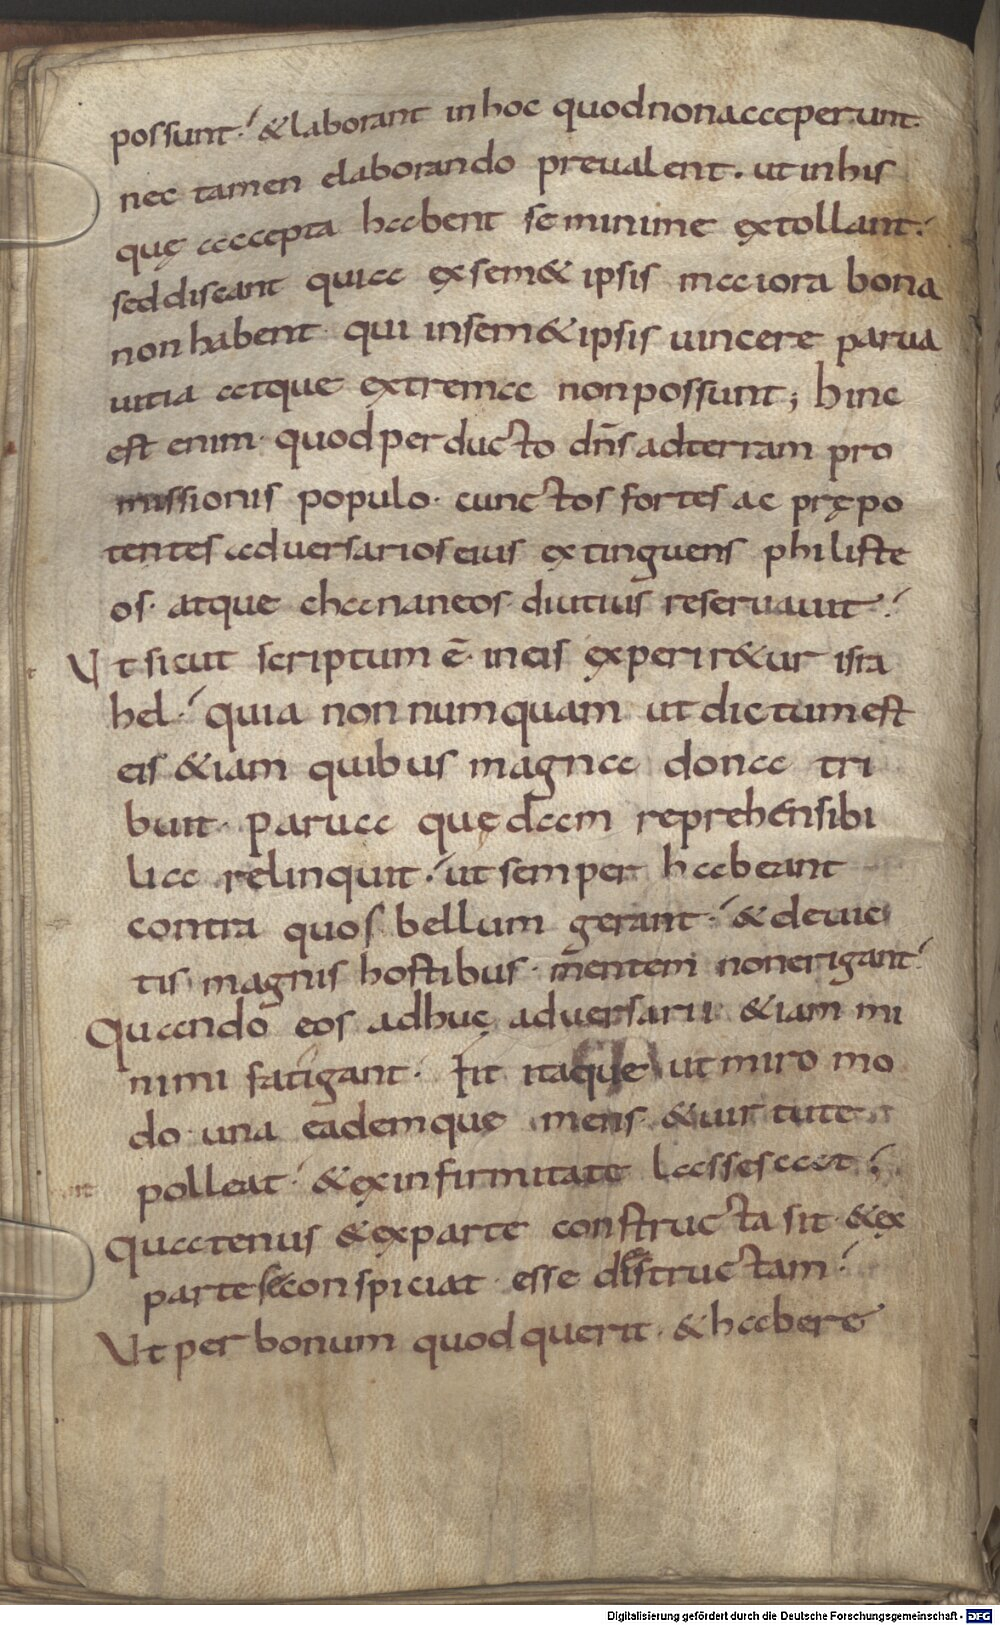 possunt·' & laborant in hoc quod non acceperunt·
nec tamen elaborando prevalent· ut in his
quę accepta habent se minime ęxtollant·'
sed discant quia ęx sem&ipsis maiora bona
non habent· qui in sem&ipsis vincere parva
vitia atque ęxtrema non possunt; hinc
est enim· quod perducto dn̄s ad terram pro
missionis populo· cunctos fortes ac prępo
tentes adversarios eius ęxtinguens philiste
os· atque chananeos· diutius reservavit·'
Ut sicut scriptum ē· in eis ęxperir&ur isra
hel·' quia non numquam ut dictum est
eis &iam quibus magna dona tri
buit· parva quędam reprehensibi
lia relinquit·' ut semper habeant
contra quos bellum gerant·' & devic
tis magnis hostibus· mentem non erigant·'
Quando eos adhuc adversarii &iam mi
nimi fatigant· Fit itaque ut miro mo
do una eademque mens· & virtute
polleat·' & ęx infirmitate lassescat·'
Quatenus & ęx parte constructa sit· & ęx
parte se conspiciat esse destructam·'
Ut per bonum quod querit· & habere
Digitalisierung gefördert durch die Deutsche Forschungsgemeinschaft - DFG